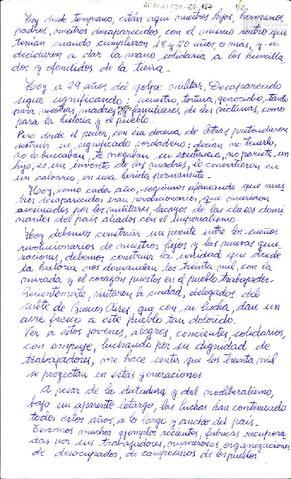 1/2
Hoy desde temprano, están aquí nuestros hijos, hermanos,
padres, nuestros desaparecidos, con el mismo rostro que
tenían cuando cumplieron 18 y 20 años, o más, y se
decidieron a dar la mano solidaria a los humilla
dos y ofendidos de la tierra.
Hoy a 29 años del golpe militar, Desaparecido
sigue significando: secuestro, tortura, genocidio, tanto
para nuestras madres, familiares de las víctimas, como
para la historia y el pueblo
Pero desde el poder, con esa docena de letras pretendieron
destruir su significado verdadero: decían no tenerlo,
no lo buscaban, le negaban su existencia, no partiste, un
hijo, es un invento de las madres, lo convirtieron en
un calvario, en una herida permanente.
Hoy, como cada año, seguimos afirmando que nues
tros desaparecidos eran revolucionarios, que murieron
asesinados por los militares, lacayos de las clases domi
nantes del país aliados con el imperialismo
Hoy debemos construir un puente entre los sueños
revolucionarios de nuestros hijos y las nuevas gene
raciones, debemos construir la unidad que desde
la historia nos demandan los treinta mil, con la
mirada y el corazón puestos en el pueblo trabajador.
Recientemente, visitaron la ciudad, delegados del
subte de Buenos Aires que con su lucha, dan un
aire fresco a este pueblo tan dolorido.
Ver a estos jóvenes, alegres, concientes, solidarios,
con empuje, luchando por su dignidad de
trabajadores, me hace sentir que los treinta mil
se proyectan en estas generaciones
A pesar de la dictadura y del neoliberalismo,
bajo un aparente letargo, las luchas han continuado
todos estos años, a lo largo y ancho del país.
Tenemos muchos ejemplos recientes, fábricas recupera
das por sus trabajadores, numerosas organizaciones
de desocupados, de campesinos de los pueblos